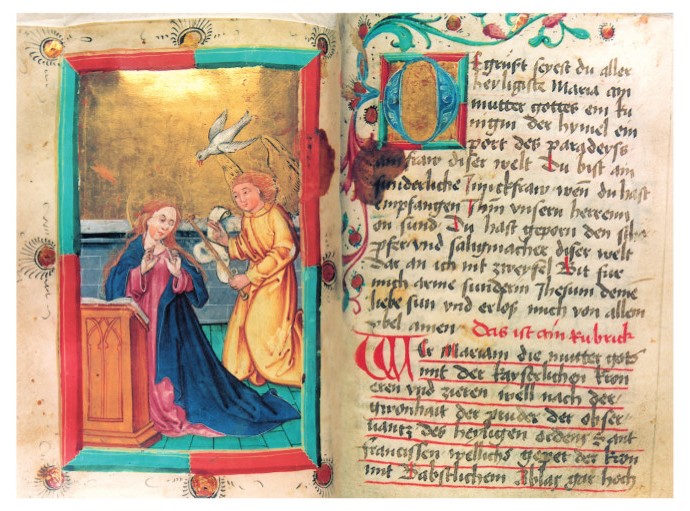 O gegrüst seyest du aller
heyligiste Maria ain
mutter gottes ein kü
nigin der hymel ein
port des paradeyss
ain fraw diser welt Du bist ain
sunderliche Junckfraw wen du hast
empfangen Jhm vnsern herrenn
on sund Du hast geporn den
pfer vnd saligmacher diser welt
Dar an ich nit zweyfel Bit für
mich arme sunderin Jhesum deine
liebe sun vnd erloss mich von allem
vbel amen Das ist ain Rubrick
Wer Mariam die mutter gots
mit der kayserlichen kron
eren vnd zieren well nach der
gwonhait der pruder der obser
uantz des heyligen ordens Sant
francissen wellichs gepet der kron
mit Babstlichem Ablas gar hoch